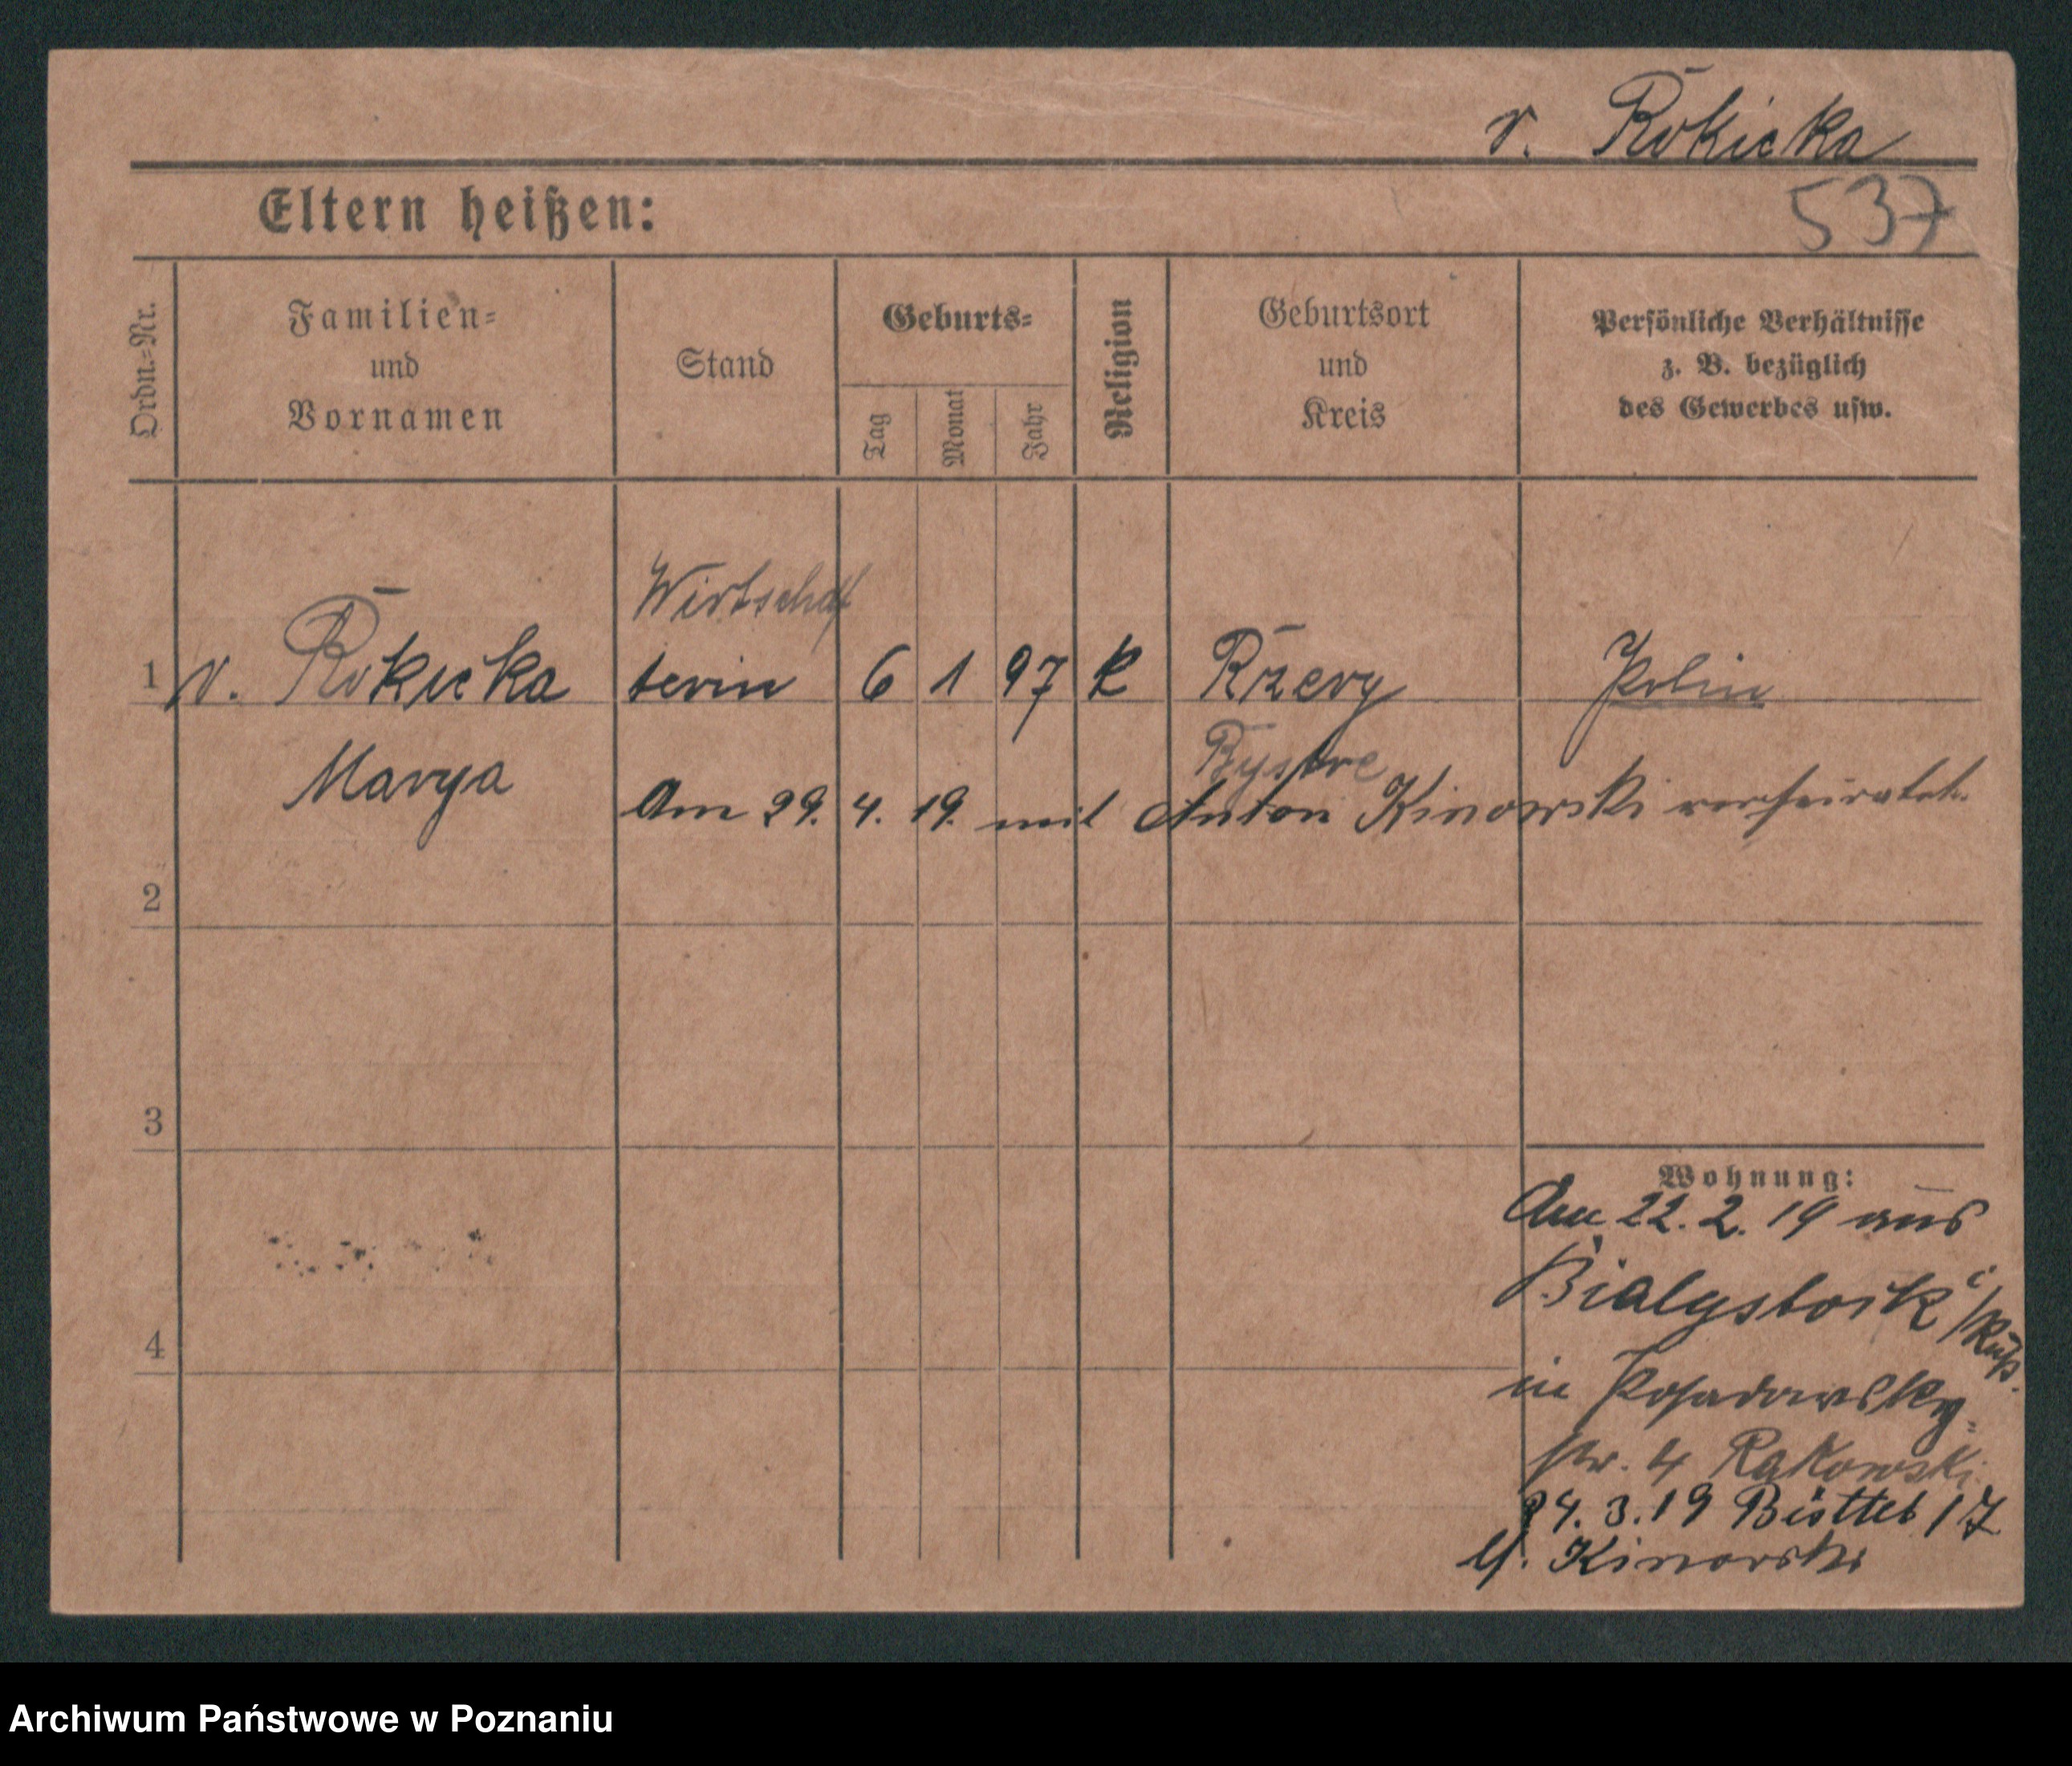 v. Rokicka
537
Eltern heißen:
Ordn.-Nr.
Familien-
und
Vornamen
Stand
Geburts-
Tag
Monat
Jahr
Religion
Geburtsort
und
Kreis
Persönliche Verhältnisse
z. B. bezüglich
des Gewerbes usw.
Wirtschaf
1 v. Rokicka terin 6 1 97 k Polin
Marya Bystre
Am 29. 4. 19. mit Anton Kinowski verheiratet.
2
3
4
Wohnung:
Am 22. 2. 19 aus
Bialystock i/Ruß.
in Posadowsky-
str. 4 Rakowski
24. 3. 19 17
Kinowski
Archiwum Państwowe w Poznaniu